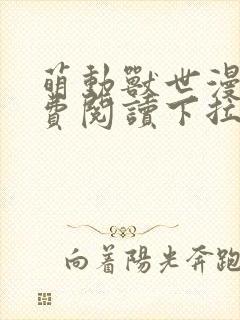 萌動獸世漫
費閱讀下拉
向着陽光奔跑